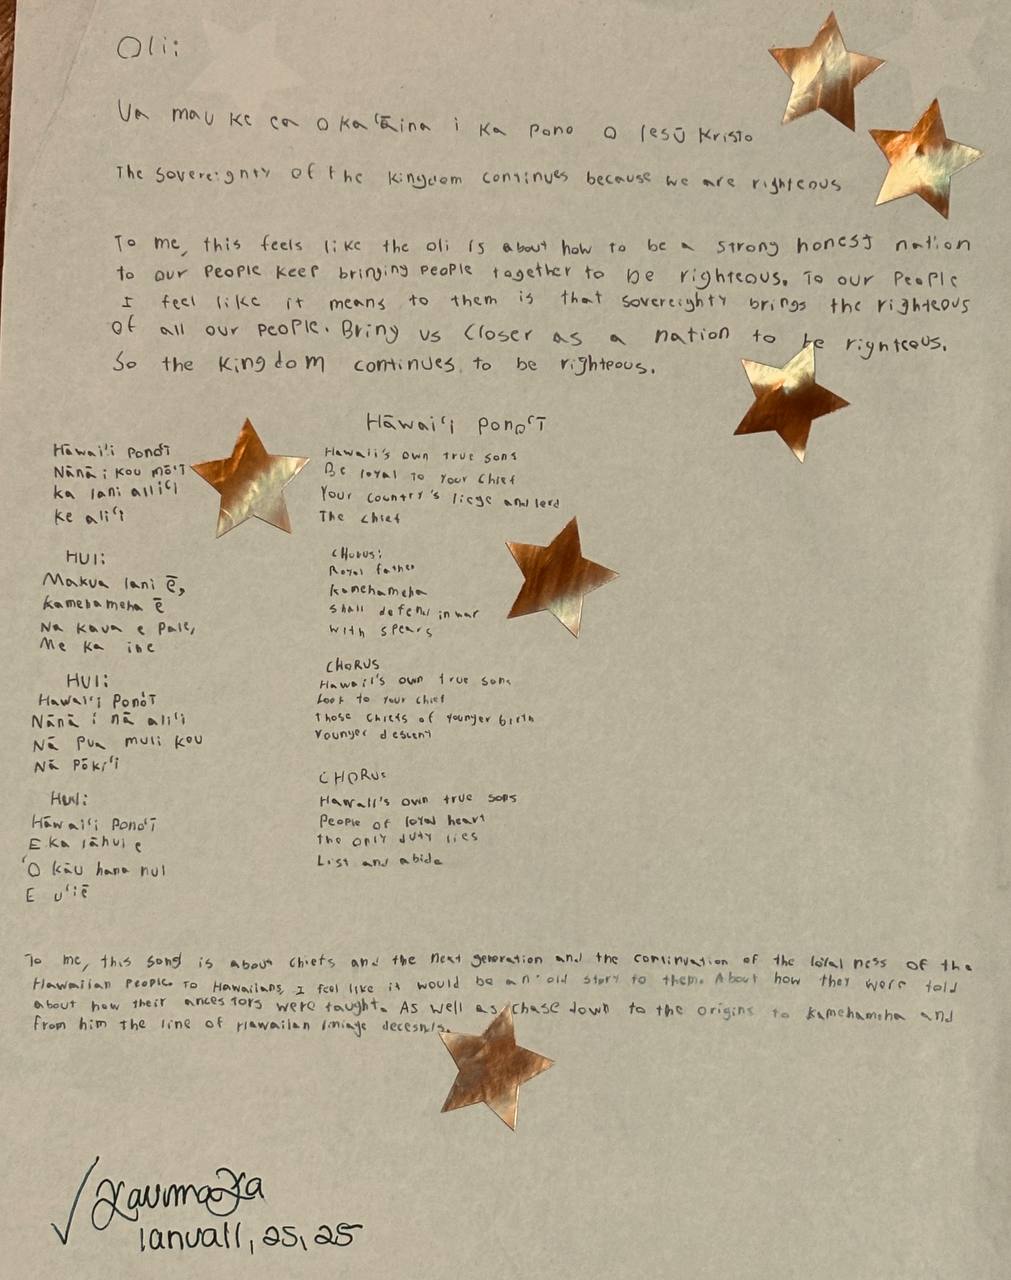 Oli:
Ua mau ke ea o ka ʻĀina i ka pono o Iesū Kristo
The sovereignty of the kingdom continues because we are righteous
To me, this feels like the oli is about how to be a strong honest nation
to our people keep bringing people together to be righteous. To our people
I feel like it means to them is that sovereighty brings the righteous
of all our people. Bring us closer as a nation to be righteous.
So the kingdom continues to be righteous.
Hāwaiʻi ponoʻī
Hāwaiʻi ponoʻī
Nānā i kou mōʻī
ka lani aliiʻi
ke aliʻi
HUI:
Makua lani ē,
kamehameha ē
Na kaua e pale,
Me ka ihe
HUI:
Hawaiʻi ponoʻī
Nānā i nā aliʻi
Nā pua muli kou
Nā pōkiʻi
HUI:
Hāwaiʻi ponoʻī
E ka lāhui e
ʻO kāu hana nui
E uʻiē
Hawaii's own true sons
Be loyal to your chief
Your country's liege and lord
The chief
CHorus:
Royal father
kamehameha
shall defend in war
with spears
CHORUS
Hawaii's own true sons
Look to your chief
Those chiefs of younger birth
Younger descent
CHORUS
Hawaii's own true sons
People of loyal heart
the only duty lies
List and abide
To me, this song is about chiefs and the next generation and the continuation of the loial ness of the
Hawaiian people. To Hawaiians, I feel like it would be an old story to them. About how they were told
about how their ancestors were taught. As well as chase down to the origins to kamehameha and
from him the line of Hawaiian
Kaumaka
Ianuali, 25, 25